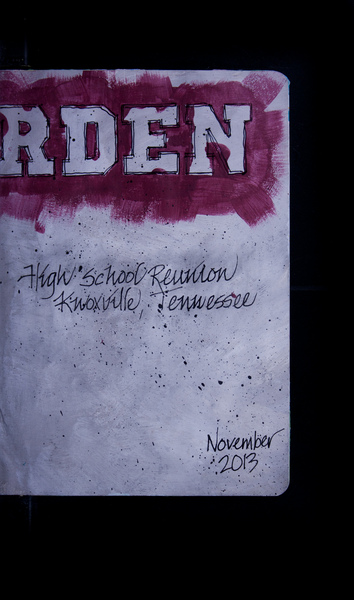 RDEN
High School Reunion
Knoxville, Tennessee
November
2013